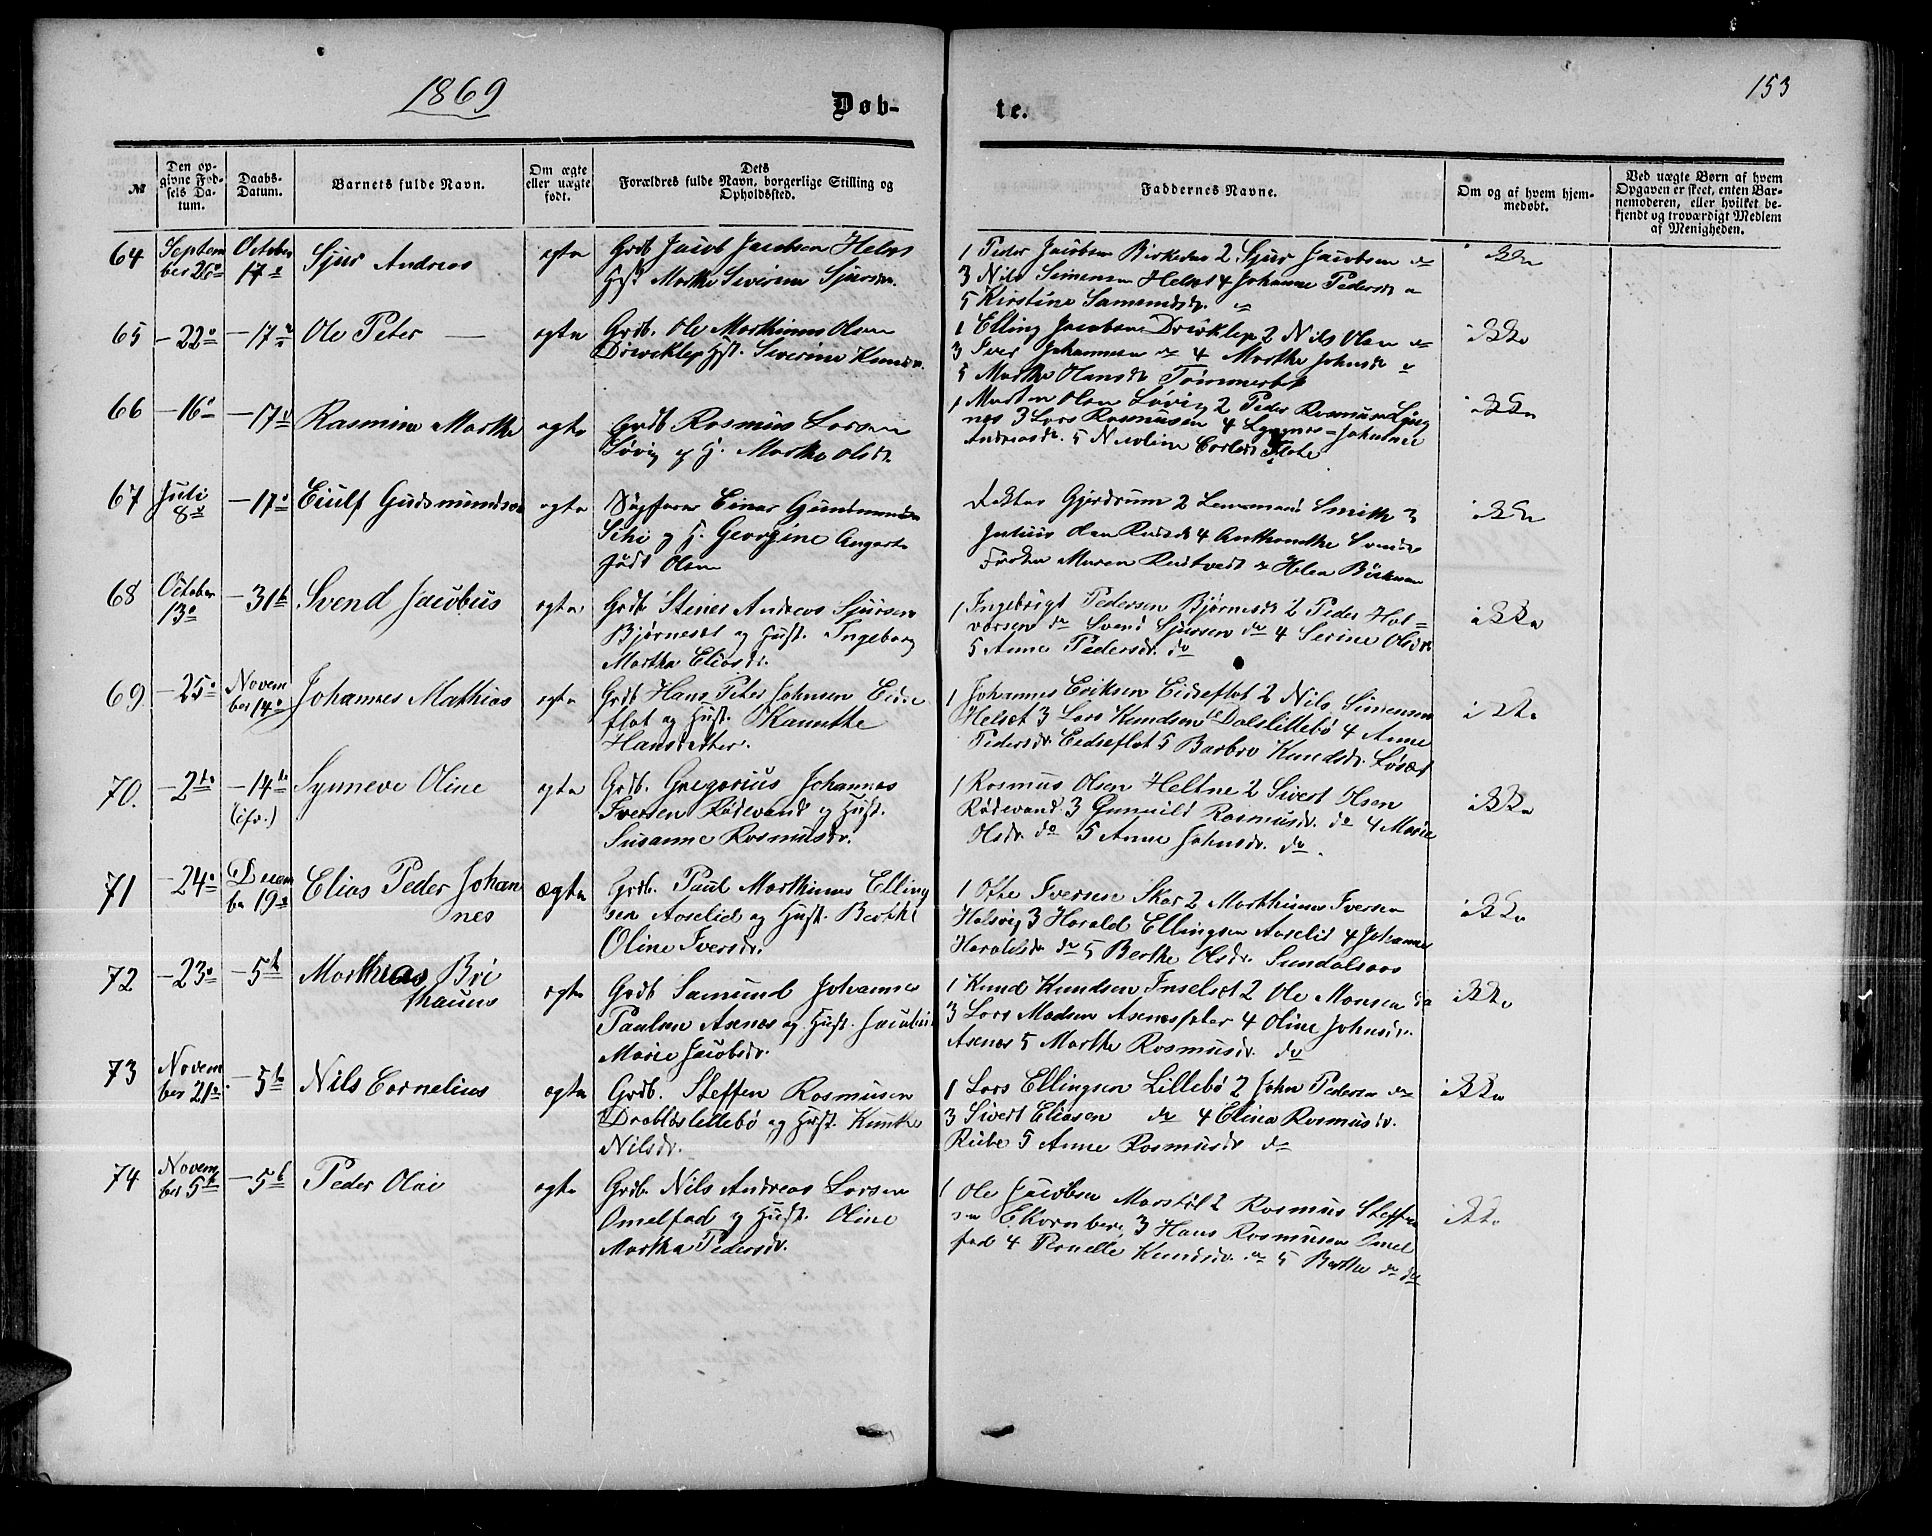 1869
Døb-
te.
153
№
Den op-
givne Fød-
sels Da-
tum.
Daabs-
Datum.
Barnets fulde Navn.
Om ægte
eller uægte
født.
Dets
Forældres fulde Navn, borgerlige Stilling og
Opholdssted.
Faddernes Navne.
Om og af hvem hjem-
medøbt.
Ved uægte Børn af hvem
Opgaven er skeet, enten Bar-
nemoderen, eller hvilket be-
kjendt og troværdigt Medlem
af Menigheden.
64
Septem
ber 26
October
17
Sjur Andreas
egte
Grdb Jacob Jacobsen Helset
Hst Marthe Severine Sjursdr.
1 Peder Jacobsen 2 Sjur Jacobsen do
3 Nils Simensen Helset 4 Johanne Pedersdr
5 Kirstine Samundsdr.
ikke
65
- 22
- 17
Ole Peter
egte
Grdb. Ole Marthinus Olsen
Hst. Severine Knudsdr.
1 Elling Jacobsen 2 Nils Olsen do
3 Iver Johannesen do 4 Marthe Johnsdr
5 Marthe Hansdr
ikke
66
- 16
- 17
Rasmine Marthe
egte
Grdb Rasmus Larsen
Løvig og H. Marthe Olsdr.
1 Morten Olsen Løvig 2 Peder Rasmusen Lyng
nes 3 Lars Rasmusen 4 Lyngnes Johanne
Andreasdr. 5 Nicoline Carlsdr Flote
ikke
67
Juli
8
- 17
Eiulf Gudsmundson
egte
Einar Gundmundsen
og H. Georgine Augusta
født Olsen
Doktor Gjerdrum 2 Lensmand Smith 3
Julius Olsen 4
Frøken Maren og Helen
ikke
68
October
13
- 31
Svend Jacobus
egte
Grdb Steiner Andreas Sjursen
Bjørneset og Hust. Ingeborg
Martha Eliasdr.
1 Ingebrigt Pedersen 2 Peder Hal=
vorsen do Svend Sjursen do 4 Serine Olsdr
5 Anne Pedersdr. do
ikke
69
- 25
Novem
ber 14
Johannes Mathias
egte
Grdb Hans Peter Johnsen Eidse
flot og Hust.
Hansdatter.
1 Johannes Eriksen Eidseflot 2 Nils Simensen
Helset 3 Lars Knudsen Dalslillebø 4 Anne
Pedersdr. Eidseflot 5 Barbro Knudsdr. Løset
ikke
70.
- 2
- 14
Synneve Oline
egte
Grdb. Gregorius Johannes
Iversen Rødevand og Hust.
Susanne Rasmusdr.
1 Rasmus Olsen Heltne 2 Sivert Olsen
Rødevand. 3 Gunnild Rasmusdr. do 4 Marie
Olsdr. do 5 Anne Johnsdr. do.
ikke
71
- 24
Decem
ber 19
Elias Peder Johan
nes
ægte
Grdb. Paul Marthinus Elling
sen Aaselid og Hust. Berthe
Oline Iversdr.
1 Iversen Skar 2 Marthinus Iversen
Halsvig 3 Harald Ellingsen Aaselid 4 Johanne
Haraldsdr. do 5 Berthe Olsdr. Sundalsaas
ikke
72
- 23
- 5
Marthias Bri
thanus
egte
Grdb Samund Johannes
Paulsen Asenes og Hust. Jacobine
Marie Jacobsdr.
1 Knud Knudsen Inselset 2 Ole Monsen do
3 Lars Madsen 4 Oline Johnsdr.
Asenes 5 Marthe Rasmusdr. do
ikke
73
Novem
ber 21
- 5
Nils Cornelius
egte
Grdb. Steffen Rasmusen
Drabløslillebø og Hust.
Nilsdr.
1 Lars Ellingsen Lillebø 2 John Pedersen do
3 Sivert Eliasen do 4 Elina Rasmusdr.
5 Anne Rasmusdr do
ikke
74
Novem
ber 5
- 5
Peder Olai
egte
Grdb. Nils Andreas Larsen
Omelfad og Hust. Oline
Martha Pedersdr.
1 Ole Jacobsen 2 Rasmus Steffen
sen Ekornberg, 3 Hans Rasmusen Omel
fad 4 Pernelle Knudsdr. do 5 Berthe do do
ikke